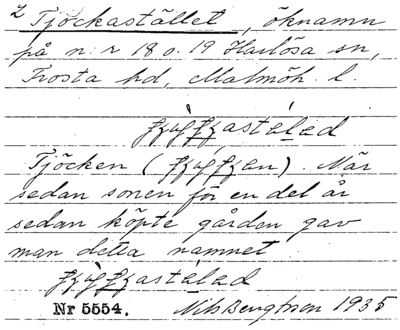 2 Tjöckastället, öknamn
på n:r 18 o. 19 Harlösa sn,
Frosta hd, Malmöh. l.
Tjöcken ( ). När
sedan sonen för en del år
sedan köpte gården gav
man detta namnet
Nr 5554. Nils Bengtsson 1935